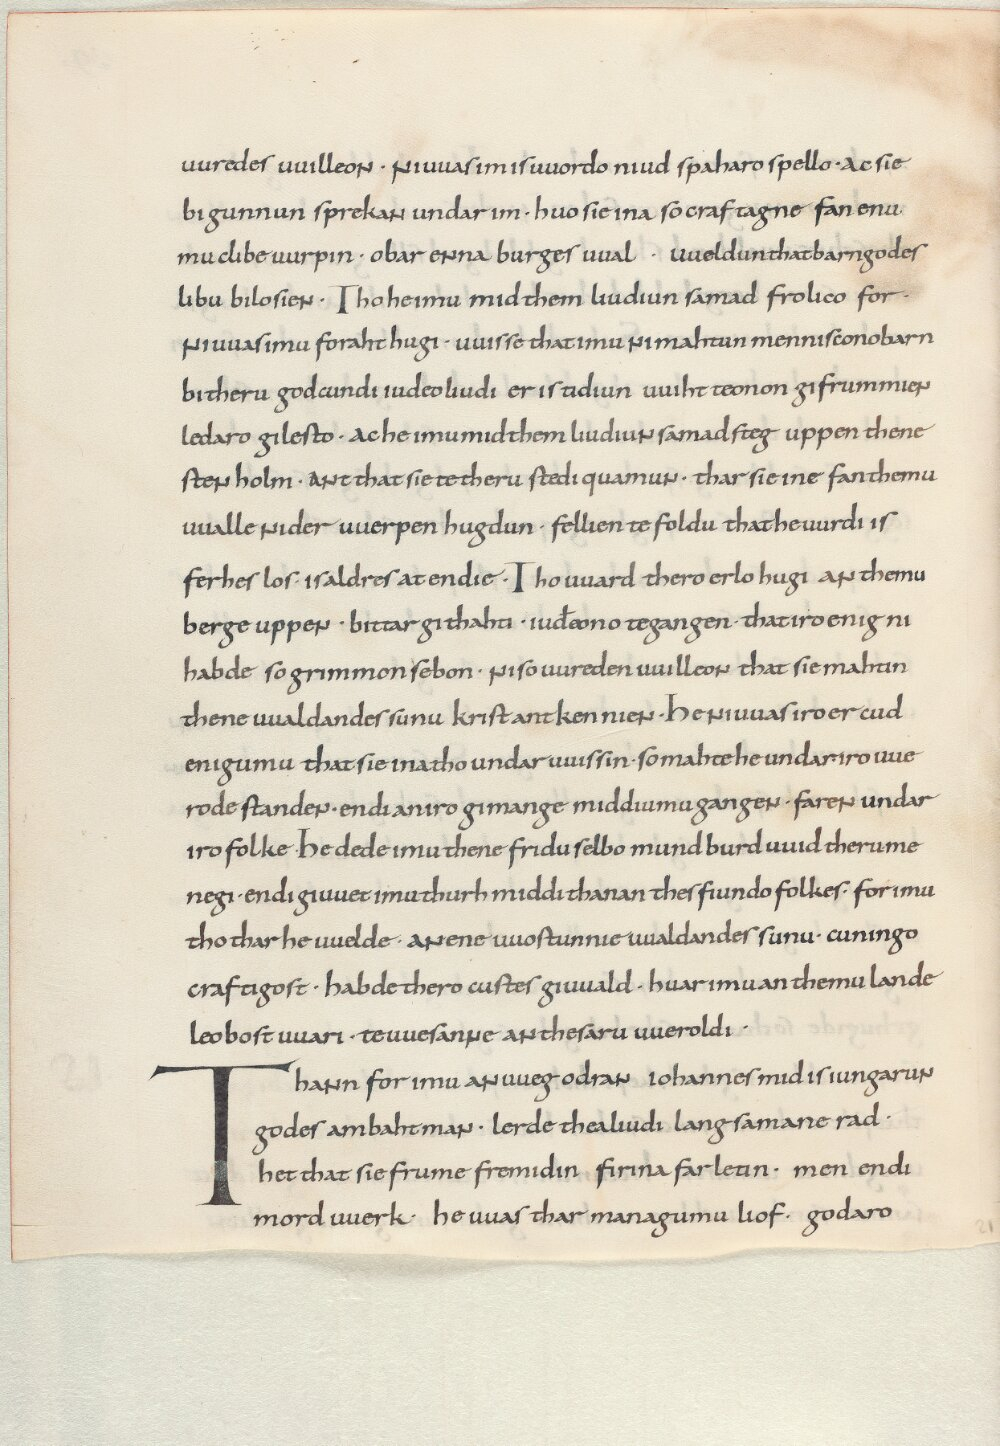 uuredes uuilleon · niuuas im is uuordo niud spaharo spello · ac sie
bigunnun sprekan undar im · huo sie ina so craftagne fan enu
mu clibe uurpin · obar enna burges uual · uueldun that barn godes
libu bilosien · Tho he imu mid them liudiun samad frolico for ·
niuuas imu foraht hugi · uuisse that imu ni mahtun menniscono barn
bi theru godcundi iudeo liudi er is tidiun uuiht teonon gifrummien
ledaro gilesto · ac he imu mid them liudiun samad steg uppen thene
sten holm · ant that sie te theru stedi quamun · thar sie ine fan themu
uualle nider uuerpen hugdun · fellien te foldu that he uurdi is
ferhes los · is aldres at endie · Tho uuard thero erlo hugi an themu
berge uppen · bittar githahti · iuđeono tegangen · that iro enig ni
habde so grimmon sebon · ni so uureden uuilleon that sie mahtin
thene uualdandes sunu krist antkennien · He niuuas iro er cud
enigumu that sie ina tho undar uuissin · so mahte he undar iro uue
rode standen · endi an iro gimange middiumu gangen · faren undar
iro folke · He dede imu thene fridu selbo mundburd uuid theru me
negi · endi giuuet imu thurh middi thanan thes fiundo folkes · for imu
tho thar he uuelde · an ene uuostunnie uualdandes sunu · cuningo
craftigost · habde thero custes giuuald · huar imu an themu lande
leobost uuari · te uuesanne an thesaru uueroldi ·
Thann for imu an uueg odran iohannes mid is iungarun
godes ambahtman · lerde thea liudi langsamane rad ·
het that sie frume fremidin firina farletin · men endi
mord uuerk · he uuas thar managumu liof · godaro